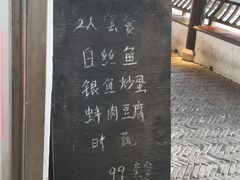 2人套餐
白丝鱼
银鱼炒蛋
蚌肉豆腐
时蔬
99套餐